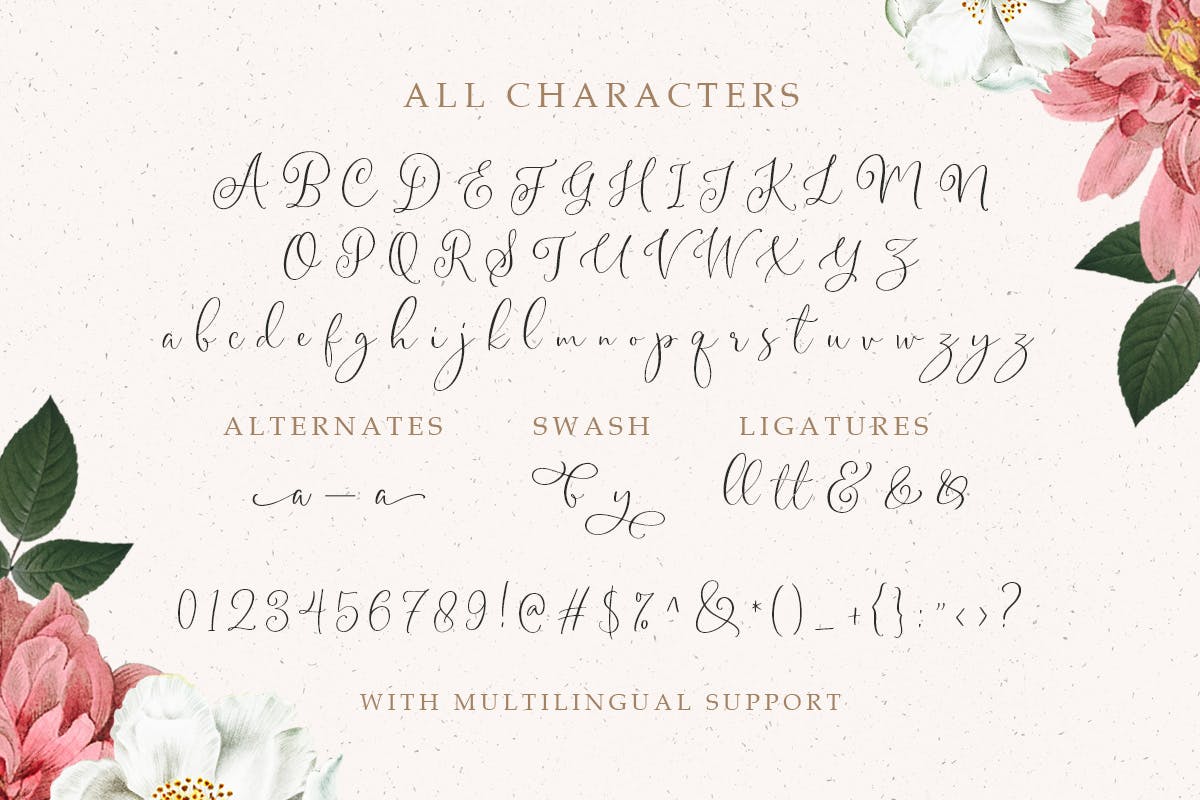 ALL CHARACTERS
A B C D E F G H I J K L M N
O P Q R S T U V W X Y Z
a b c d e f g h i j k l m n o p q r s t u v w z y z
ALTERNATES SWASH LIGATURES
a — a b y ll tt & & &
0 1 2 3 4 5 6 7 8 9 ! @ # $ % ^ & * ( ) _ + { } : " < > ?
WITH MULTILINGUAL SUPPORT